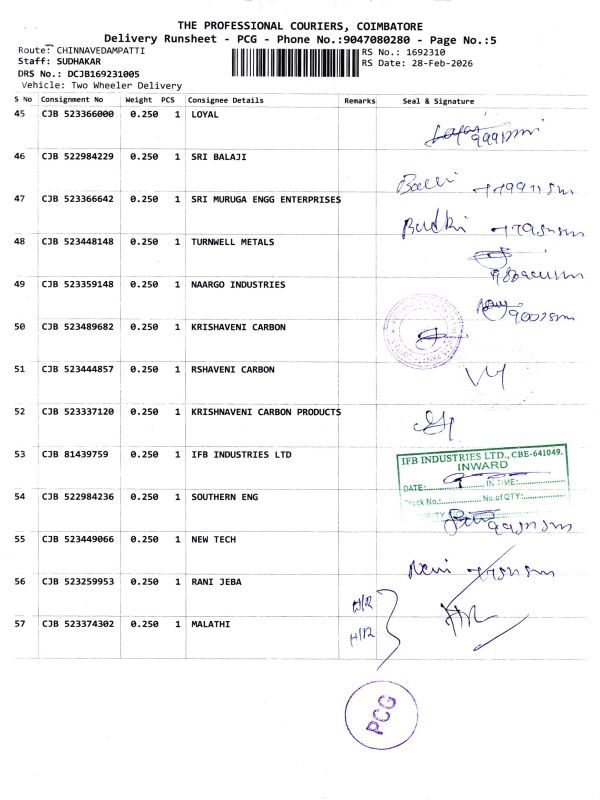 THE PROFESSIONAL COURIERS, COIMBATORE
Delivery Runsheet - PCG - Phone No.:9047080280 - Page No.:5
Route: CHINNAVEDAMPATTI
Staff: SUDHAKAR
DRS No.: DCJB169231005
Vehicle: Two Wheeler Delivery
RS No.: 1692310
RS Date: 28-Feb-2026
S No Consignment No Weight PCS Consignee Details Remarks Seal & Signature
45 CJB 523366000 0.250 1 LOYAL
46 CJB 522984229 0.250 1 SRI BALAJI
47 CJB 523366642 0.250 1 SRI MURUGA ENGG ENTERPRISES
48 CJB 523448148 0.250 1 TURNWELL METALS
49 CJB 523359148 0.250 1 NAARGO INDUSTRIES
50 CJB 523489682 0.250 1 KRISHAVENI CARBON
51 CJB 523444857 0.250 1 RSHAVENI CARBON
52 CJB 523337120 0.250 1 KRISHNAVENI CARBON PRODUCTS
53 CJB 81439759 0.250 1 IFB INDUSTRIES LTD
IFB INDUSTRIES LTD., CBE-641049.
INWARD
DATE: IN TIME:
Truck No.: No.of QTY:
54 CJB 522984236 0.250 1 SOUTHERN ENG
55 CJB 523449066 0.250 1 NEW TECH
56 CJB 523259953 0.250 1 RANI JEBA
57 CJB 523374302 0.250 1 MALATHI
PCG